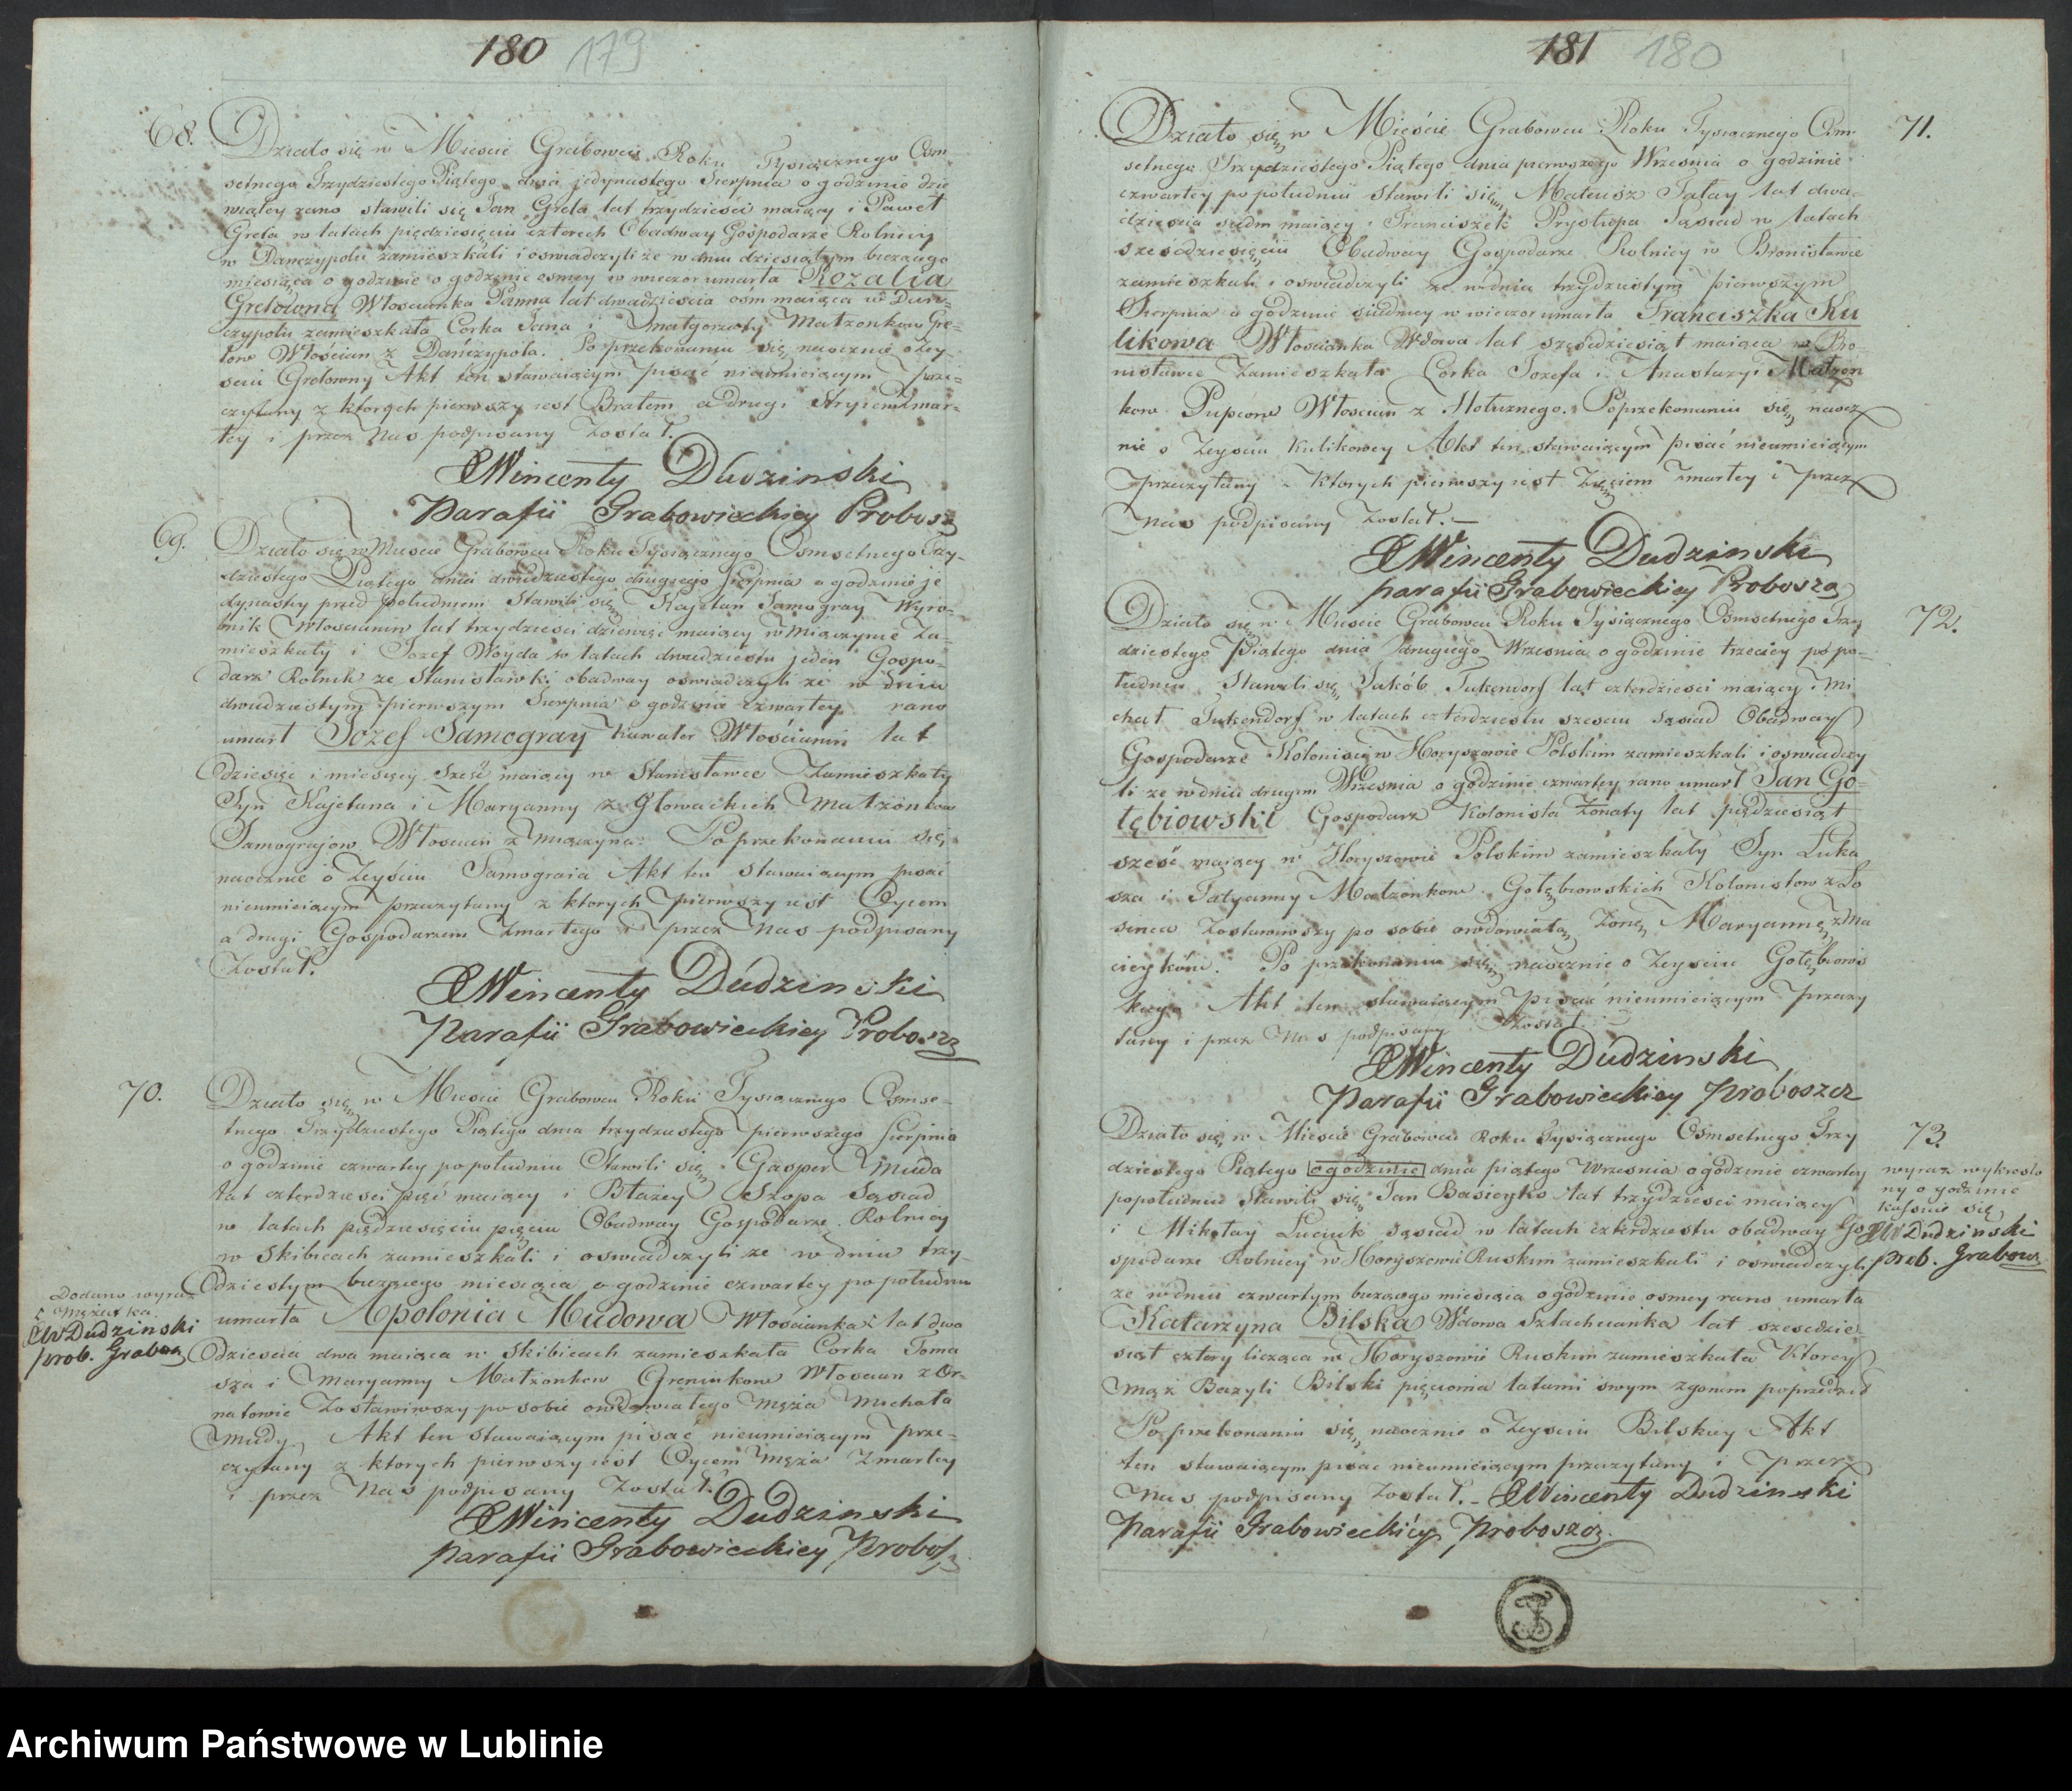 180 179
68. Działo się w Mieście Grabowcu Roku Tysiącznego Ośm
setnego Trzydziestego Piątego dnia jedynastego Sierpnia o godzinie dzie
wiątey rano stawili się Jan Grela lat trzydzieści maiący i Paweł
Grela w latach pięćdziesięciu czterech Obadway Gospodarze Rolnicy
w Dańczypolu zamieszkali i oświadczyli że w dniu dziesiątym bieżącego
miesiąca o godzinie o godzinie osmey w wieczor umarła Rozalia
Grelowna Włościanka Panna lat dwadzieścia ośm maiąca w Dań-
czypolu zamieszkała Corka Jana i Małgorzaty Małzonkow Gre-
low Włościan z Dańczypola. Po przekonaniu się naocznie o Zey-
ściu Grelowny Akt ten stawaiącym pisać nieumieiącym prze-
czytany z ktorych pierwszy iest Bratem a drugi Stryiem Zmar-
łey i przez Nas podpisany Został.
X Wincenty Dudzinski
Parafii Grabowieckiey Probosz
69. Działo się w Mieście Grabowcu Roku Tysiącznego Osmsetnego Trzy-
dziestego Piątego dnia dwudziestego drugiego Sierpnia o godzinie je
dynastey przed południem Stawili się Kajetan Samogray Wyro-
bnik Włościanin lat trzydzieści dziewięć maiący w Miączynie Za-
mieszkały i Jozef Woyda w latach dwudziestu jeden Gospo-
darz Rolnik ze Stanisławki obadway oświadczyli że w dniu
dwudziestym pierwszym Sierpnia o godzinie czwartey rano
umarł Jozef Samogray Kawaler Włościanin lat
dziesięć i miesięcy sześć maiący w Stanisławce Zamieszkały
Syn Kajetana i Maryanny z Głowackich Małzonkow
Samograjow Włościan z Miączyna. Po przekonaniu się
naocznie o Zeyściu Samograia Akt ten stawaiącym pisać
nieumieiącym przeczytany z ktorych pierwszy iest Oycem
a drugi Gospodarzem Zmarłego i przez Nas podpisany
Został.
X Wincenty Dudzinski
Parafii Grabowieckiey Probosz
70. Działo się w Mieście Grabowcu Roku Tysiącznego Osmse-
tnego Trzydziestego Piątego dnia trzydziestego pierwszego Sierpnia
o godzinie czwartey po południu Stawili się Gasper Muda
lat czterdzieści pięć maiący i Błażey Szopa Sąsiad
w latach pięćdziesięciu pięciu Obadway Gospodarze Rolnicy
w Skibicach zamieszkali i oświadczyli że w dniu trzy-
dziestym bieżącego miesiąca o godzinie czwartey po południu
umarła Apolonia Mudowa Włościanka lat dwa
dzieścia dwa maiąca w Skibicach zamieszkała Corka Toma
sza i Maryanny Małzonkow Greniukow Włościan z Or
natowic Zostawiwszy po sobie owdowiałego Męża Michała
Mudy Akt ten stawaiącym pisać nieumieiącym prze-
czytany z ktorych pierwszy iest Oycem Męża Zmarłey
i przez Nas podpisany Został.
X Wincenty Dudzinski
Parafii Grabowieckiey Probosz
Dodano wyraz
Mężatka
X W Dudzinski
prob. Grabow
181 180
71. Działo się w Mieście Grabowcu Roku Tysiącznego Ośm
setnego Trzydziestego Piątego dnia pierwszego Września o godzinie
czwartey po południu Stawili się Mateusz Tatay lat dwa-
dzieścia siedm maiący, Franciszek Prystupa Sąsiad w latach
sześćdziesięciu Obadway Gospodarze Rolnicy w Bronisławce
zamieszkali i oświadczyli że w dniu trzydziestym pierwszym
Sierpnia o godzinie siodmey w wieczor umarła Franciszka Ku
likowa Włościanka Wdowa lat sześćdziesiąt maiąca w Bro
nisławce Zamieszkała Corka Jozefa i Anastazyi Małzon
kow Pupcow Włościan z Hołuznego. Po przekonaniu się naocz
nie o Zeyściu Kulikowey Akt ten stawaiącym pisać nieumieiącym
przeczytany z Ktorych pierwszy iest Zięciem Zmarłey i przez
Nas podpisany Został.
X Wincenty Dudzinski
parafii Grabowieckiey Probosza
72. Działo się w Mieście Grabowcu Roku Tysiącznego Ośmsetnego Trzy
dziestego Piątego dnia drugiego Września o godzinie trzeciey po po-
łudniu Stawili się Jakób Tukendorf lat czterdzieści maiący i Mi
chał Tukendorf w latach czterdziestu sześciu sąsiad Obadway
Gospodarze Koloniści w Horyszowie Polskim zamieszkali i oświadczy
li ze w dniu drugim Września o godzinie czwartey rano umarł Jan Go-
łębiowski Gospodarz Kolonista Żonaty lat pięćdziesiąt
sześć maiący w Horyszowie Polskim zamieszkały Syn Łuka
sza i Tatyanny Małzonkow Gołębiowskich Kolonistow z Ło
sińca Zostawiwszy po sobie owdowiałą Żonę Maryannę z Ma
cieyków. Po przekonaniu się naocznie o Zeyściu Gołębiows
kiego Akt ten stawaiącym pisać nieumieiącym przeczy
tany i przez Nas podpisany Został.
X Wincenty Dudzinski
Parafii Grabowieckiey Proboszcz
73. Działo się w Mieście Grabowcu Roku Tysiącznego Ośmsetnego Trzy
dziestego Piątego o godzinie dnia piątego Września o godzinie czwartey
popołudniu Stawili się Jan Basieyko lat trzydzieści maiący
i Mikołay Luciuk sąsiad w latach czterdziestu obadway Go
spodarze Rolnicy w Horyszowie Ruskim zamieszkali i oświadczyli
że w dniu czwartym bieżącego miesiąca o godzinie osmey rano umarła
Katarzyna Bilska Wdowa Szlachcianka lat sześćdzie-
siąt cztery licząca w Horyszowie Ruskim zamieszkała Ktorey
Mąż Bazyli Bilski pięcioma latami swym zgonem poprzedził
Po przekonaniu się naocznie o Zeyściu Bilskiey Akt
ten stawaiącym pisać nieumieiącym przeczytany i przez
Nas podpisany Został. X Wincenty Dudzinski
Parafii Grabowieckiey Proboszcz.
wyraz wykreślo
ny o godzinie
kassuie się
X W Dudzinski
Prob. Grabow
Archiwum Państwowe w Lublinie